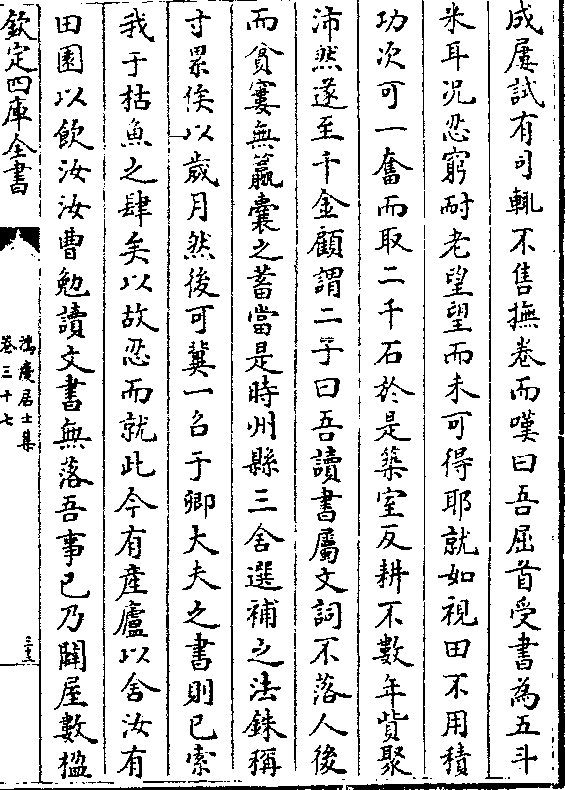 成屢試有司輒不售撫卷而嘆曰吾屈首受書為五斗
米耳况忍窮耐老望望而未可得耶就如視田不用積
功次可一奮而取二千石於是築室反耕不數年貲聚
沛然遂至千金顧謂二子曰吾讀書屬文詞不落人後
而貧寠無籯囊之蓄當是時州縣三舍選補之法銖稱
寸累俟以歲月然後可冀一名于卿大夫之書則已索
我于枯魚之肆矣以故忍而就此今有産廬以舍汝有
田園以飲汝汝曹勉讀文書無落吾事已乃闢屋數楹
欽定四庫全書
鴻慶居士集
卷三十七